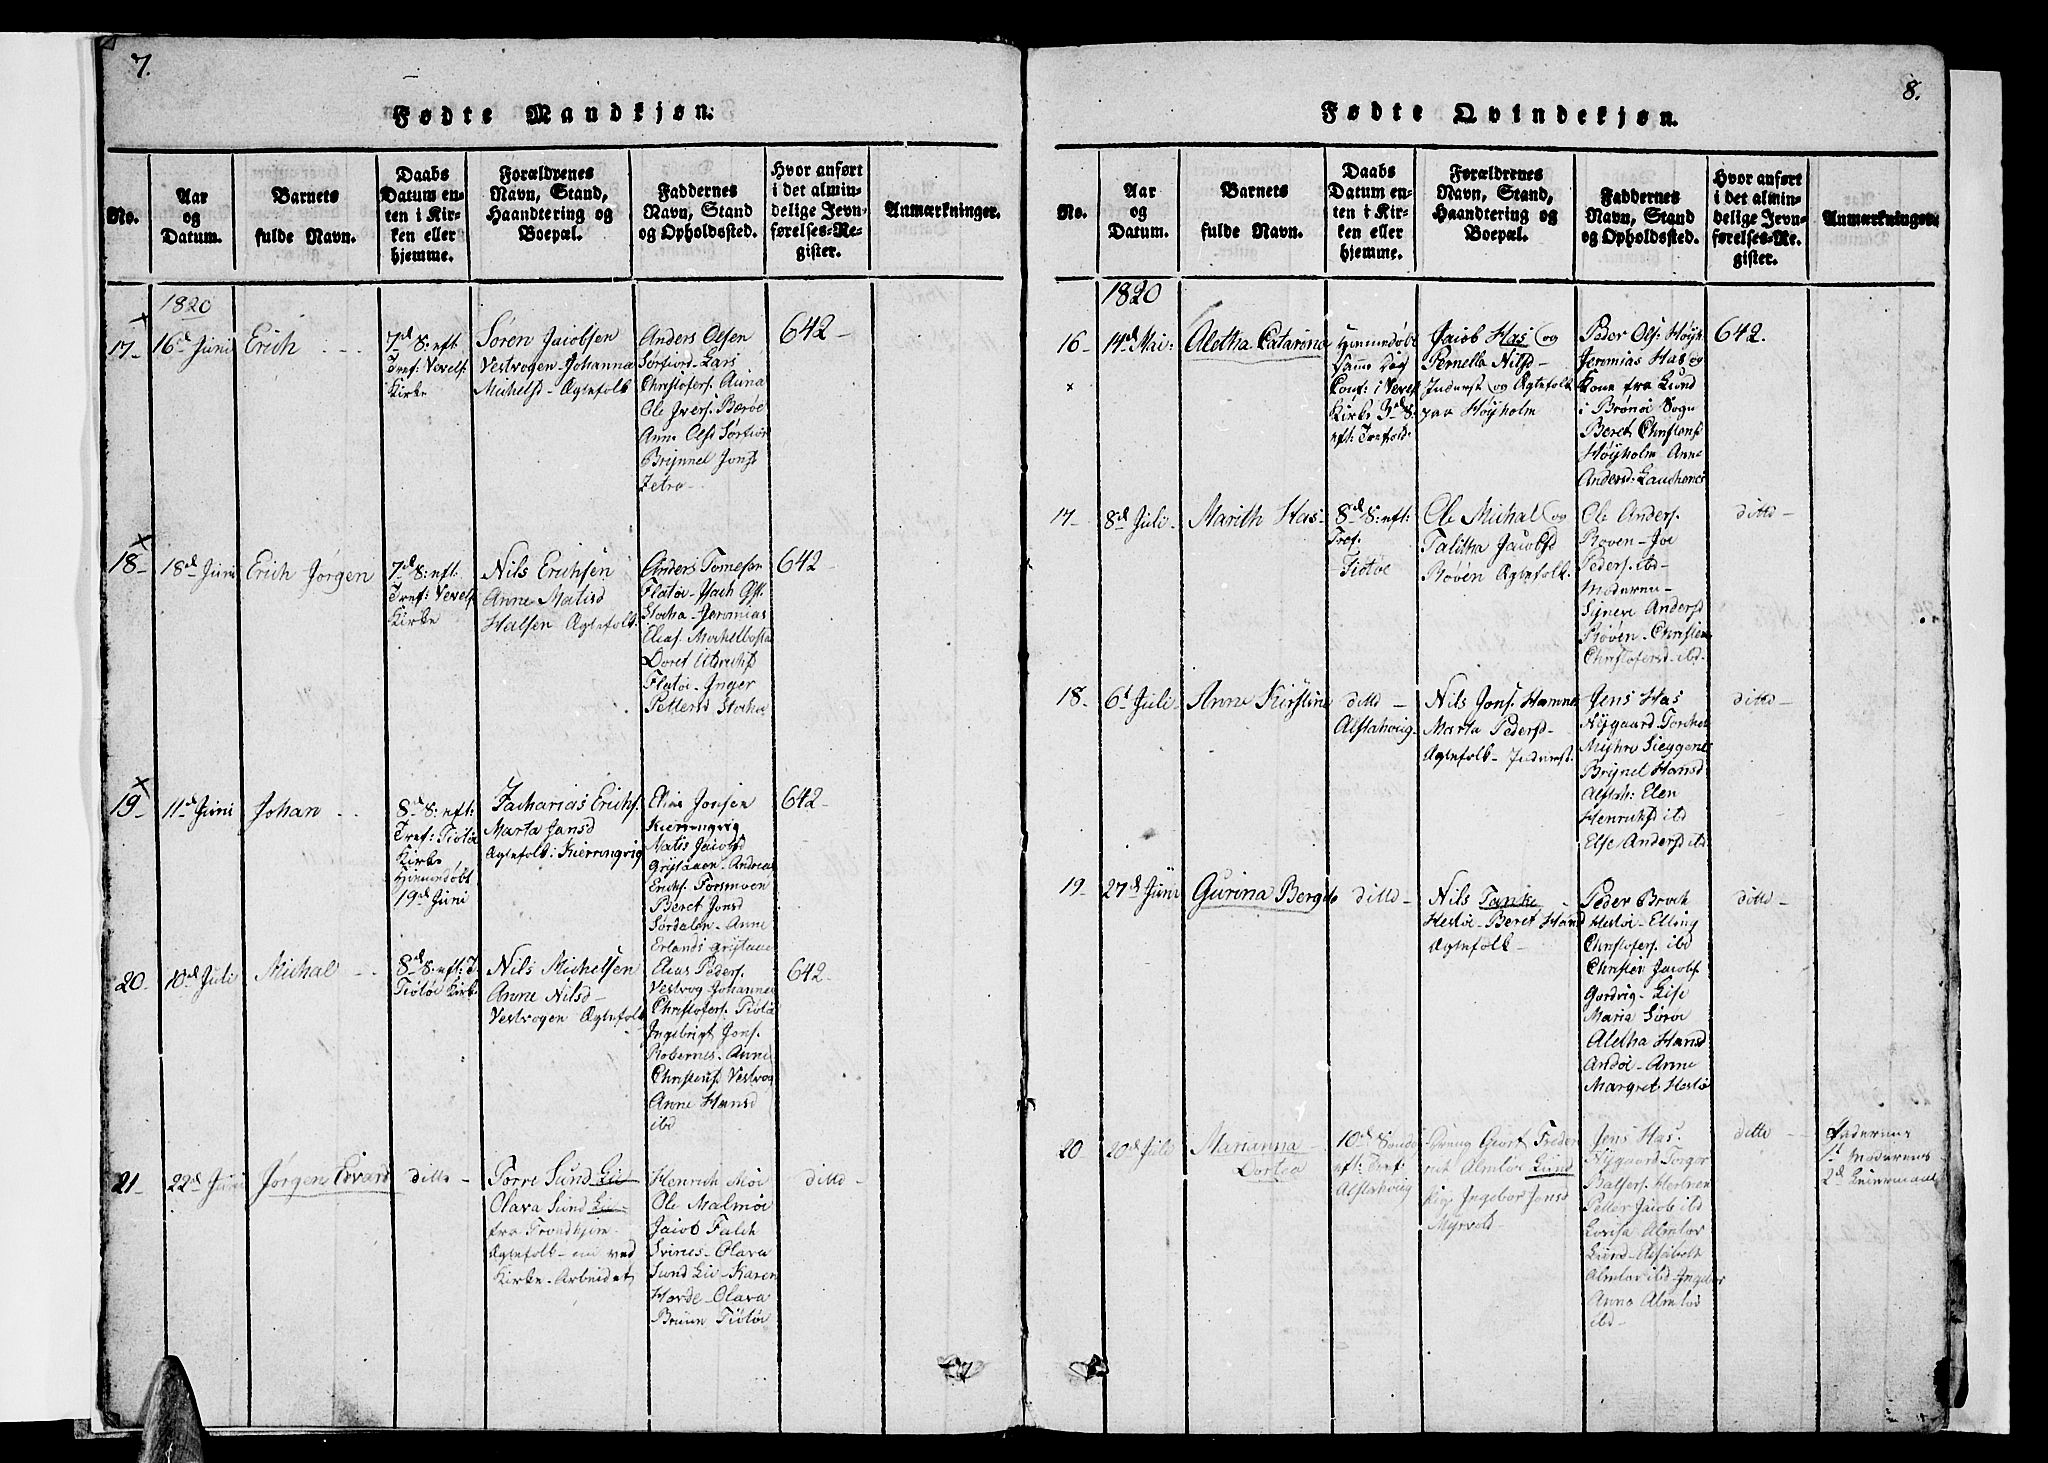 7.
Fødte Mandkjøn.
No.
Aar
og
Datum.
Barnets
fulde Navn.
Daabs
Datum en-
ten i Kir-
ken eller
hjemme.
Forældrenes
Navn, Stand,
Haandtering og
Boepæl.
Faddernes
Navn, Stand
og Opholdssted.
Hvor anført
i det almin-
delige Jevn-
førelses-Re-
gister.
Anmærkninger.
1820
17-
16d Juni
Erich
7d S: eft
Tref: Vevels:
Kirke
Søren Jacobsen
Vestvogen - Johanna
Michelsd - Ægtefolk
Anders Olsen
Sørfiord - Lars
Christofers.
Ole Ivers. Berøe
Anne Olsd Sørfiord
Brijnnel Jonsd
Zetra -
642 -
18-
18d Juni
Erich Jørgen
7d S: eft:
Tref: Vevels
Kirke
Nils Erichsen
Anne Matisd
Halsen Ægtefolk:
Anders Tomesen
Flatøi - Isach
Stocha - Jeremias
Elias. Mochelbosta
Doret
Flatøi - Inger
Pettersd Stocha
642 -
19-
11d Juni
Johan
8d S: eft:
Tref: Tiøtøi
Kirke
Hiemmedøbt
19d Juni
Zacharias Erichs.
Marta Jansd
Ægtefolk: Kierringvig
Elias Jonsen
Kierringvig
Matis Jacobsd
Andreas
Erichs. Forsmoen
Beret Jonsd
Sørdalen - Anne
Erlands
642 -
20-
10d Juli
Michal
8d S: eft: T
Tiøtøi Kirke
Nils Michelsen
Anne Nilsd -
Vestvogen Ægtefolk
Elias Peders.
Vestvog Johannes
Christofers. Tiøtøi
Ingebrigt Jons.
Robernes - Anne
Christens. Vestvog
Anne Hansd
ibd
642 -
21-
22d Juni
Jørgen Evard
ditto -
Torre Sund Lie
Olava Sund Lie
fra Trondhjem
Ægtefolk - nu ved
Kirke - Arbeidet
Henrich Moe
Ole Malmøi
Jacob Falch
Svines - Olava
Sund Lie - Karen
Horde - Olava
Bruun Tiøtøi
ditto -
8.
Fødte Qvindekjøn.
No.
Aar
og
Datum.
Barnets
fulde Navn.
Daabs
Datum en-
ten i Kir-
ken eller
hjemme.
Forældrenes
Navn, Stand,
Haandtering og
Boepæl.
Faddernes
Navn, Stand
og Opholdssted.
Hvor anført
i det almin-
delige Jevn-
førelses-Re-
gister.
Anmærkninger.
1820
16-
14d Mai:
Aletha Catarina
Hiemmedøbt
Samme Dag
Conf: i Vevels
Kirke 3d S:
eft: Trefold:
Jacob Has og
Pernella Nilsd -
Inderst og Ægtefolk
paa Høijholm
Peder Ols. Høijh
Jeremias Has og
Kone fra Lund
i Brønøi Sogn
Beret Christens
Høijholm Anne
Andersd.
642.
17-
8d Juli -
Marith Has -
8d S: eft:
Tref.
Tiøtøe
Ole Michal og
Talitha Jacobsd
Røven Ægtefolk.
Ole Anders.
Røven -
Peders. ibd -
Moderen -
Andersd
Røven - Christen
Christofersd - ibd -
ditto
18-
6t Juli -
Anne Kirstine
ditto -
Alstahoug -
Nils Jons. Hamne
Marta Pedersd -
Ægtefolk - Inderst.
Jens Has
Nygaard
Myhre
Brijnel Hansd
Alstah: Elen
Henrichsd ibd
Else Andersd ibd
ditto -
19-
27d Juni
Gurina Bergite
ditto -
Nils Tanke -
Hestøe - Beret Hansd
Ægtefolk -
Peder Broch
Hestøe - Elling
Christofers. ibd
Christen Jacobs
Gardvig - Lise
Maria Sørøi
Aletha Hansd
Andøi - Anne
Margret Hestøi
ditto -
20-
20d Juli
Marianna
Dortea
10d Sondag
eft: Tref:
Alstahoug
Dreng Giort Freder-
rik Almlov Lund
Pige Ingebor Jonsd
Myrvold -
Jens Has.
Nygaard Torger
Balsers.
Petter Jacob ibd
Lovisa Almlov
Lund - Elisabeth
Almlov ibd - Ingebor
Anna Almlov
ibd -
ditto -
Faderens
1t Moderens
2d Leiermaal